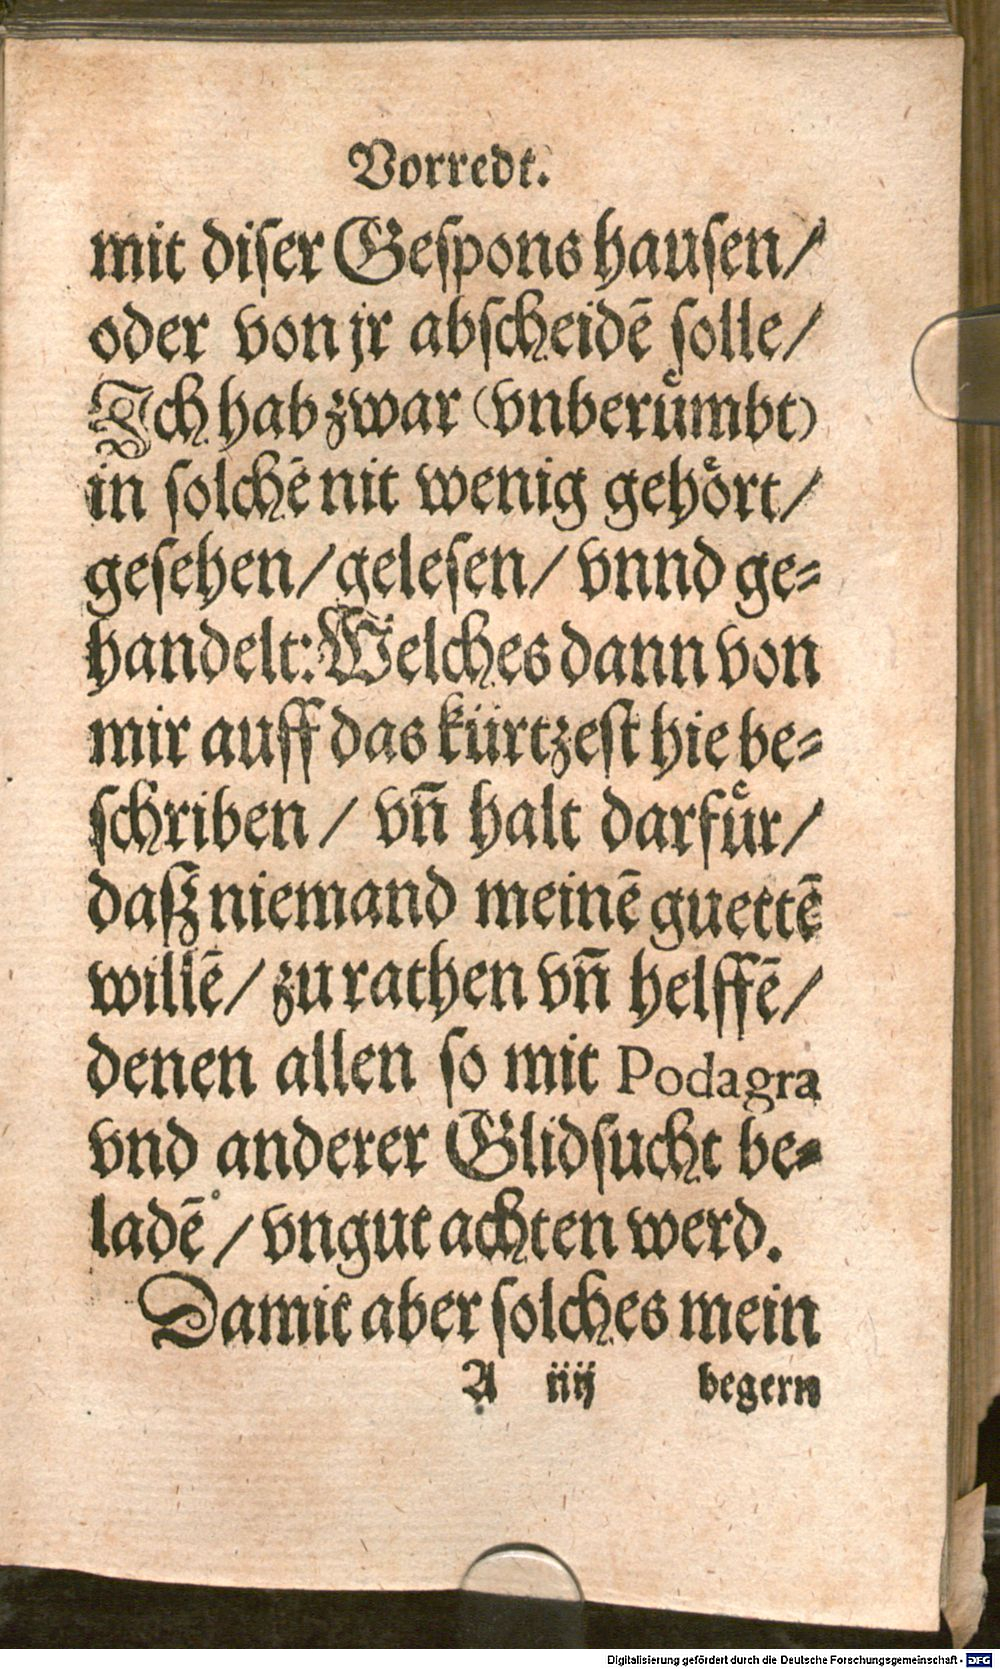 Vorredt.
mit diser Gespons hausen/
oder von jr abscheidē solle/
Ich hab zwar (vnberuͤmbt)
in solchē nit wenig gehoͤrt/
gesehen/gelesen/ vnnd ge⸗
handelt: Welches dann von
mir auff das kürtzest hie be⸗
schriben / vn̄ halt darfuͤr/
dasz niemand meinē guettē
willē/ zu rathen vn̄ helffē/
denen allen so mit Podagra
vnd anderer Glidsucht be⸗
ladē /vngut achten werd.
Damit aber solches mein
A iiij begern
Digitalisierung gefördert durch die Deutsche Forschungsgemeinschaft - DFG